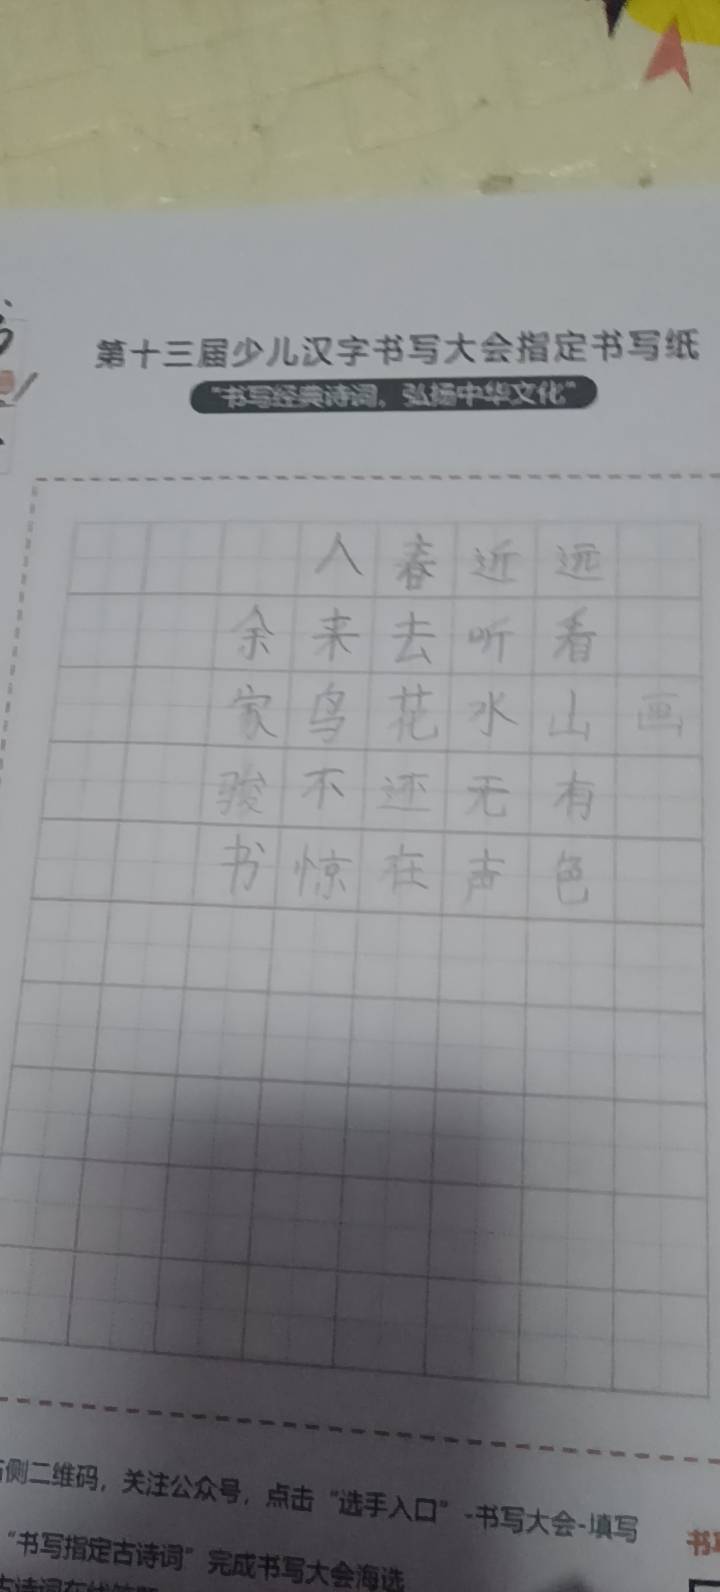 第十三届少儿汉字书写大会指定书写纸
“书写经典诗词，弘扬中华文化”
画
远看山有色
近听水无声
春去花还在
人来鸟不惊
余家骏书
侧二维码，关注公众号，点击“选手入口”-书写大会-填写
“书写指定古诗词”完成书写大会海选